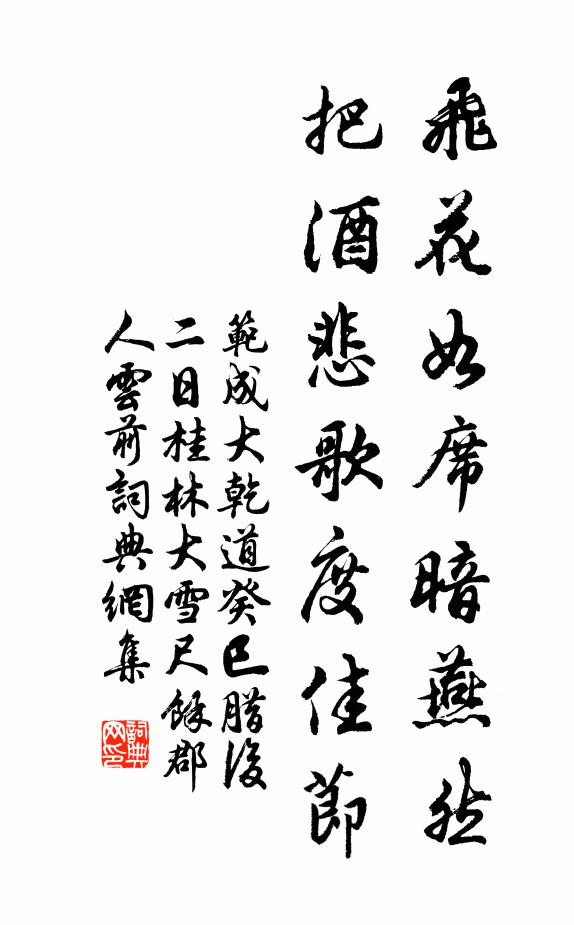 飛花如席暗燕然
把酒悲歌度佳節
範成大乾道癸巳腊後
二日桂林大雪尺餘郡
人雲前詞典網集
詞典網印